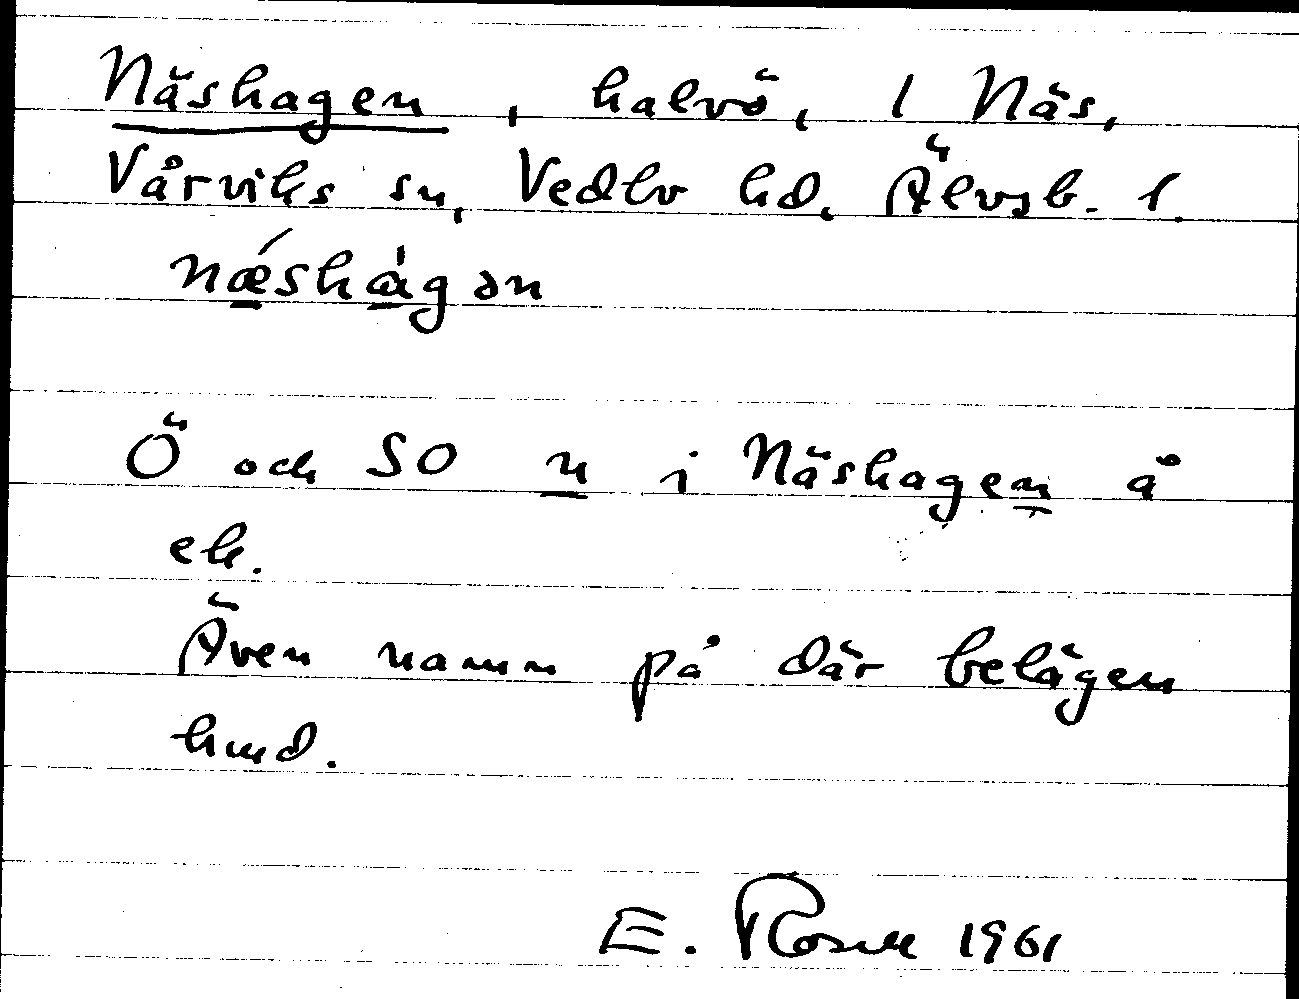 Näshagen, halvö, 1 Näs,
Vårviks sn, Vedbo hd, Älvsb. l.
næ´shàgən
Ö och SO n i Näshagen å
ek.
Även namn på där belägen
hmd.
E. Rosell 1961